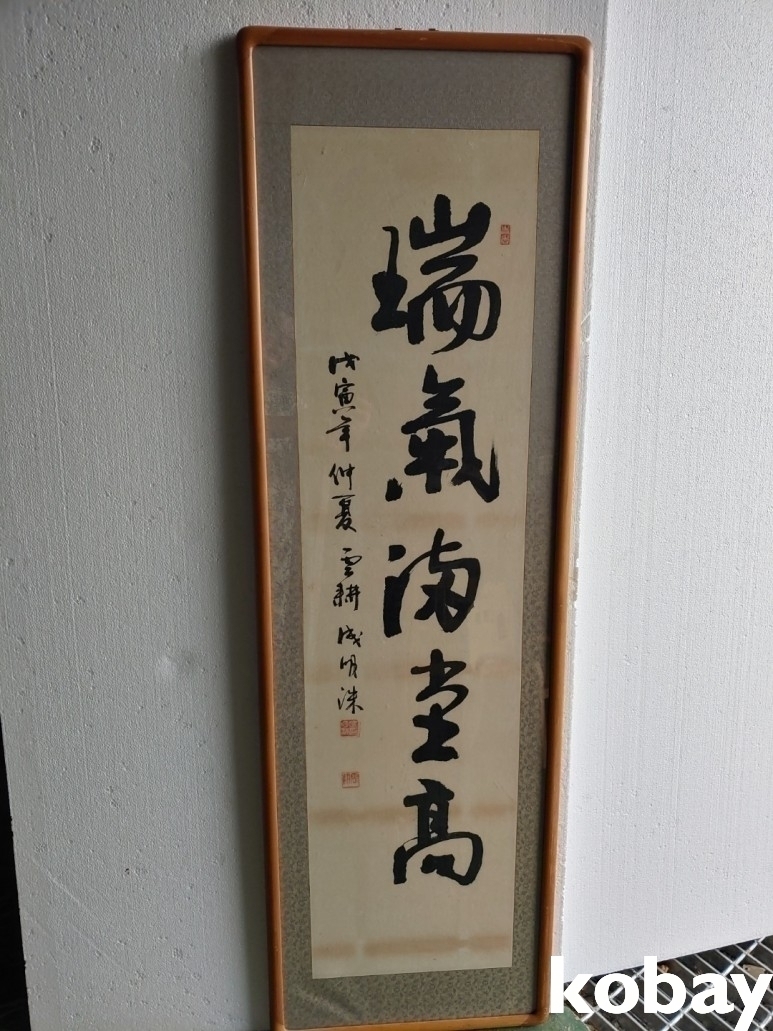 瑞氣滿堂高
戊寅年 仲夏 雲耕 成明洙
kobay